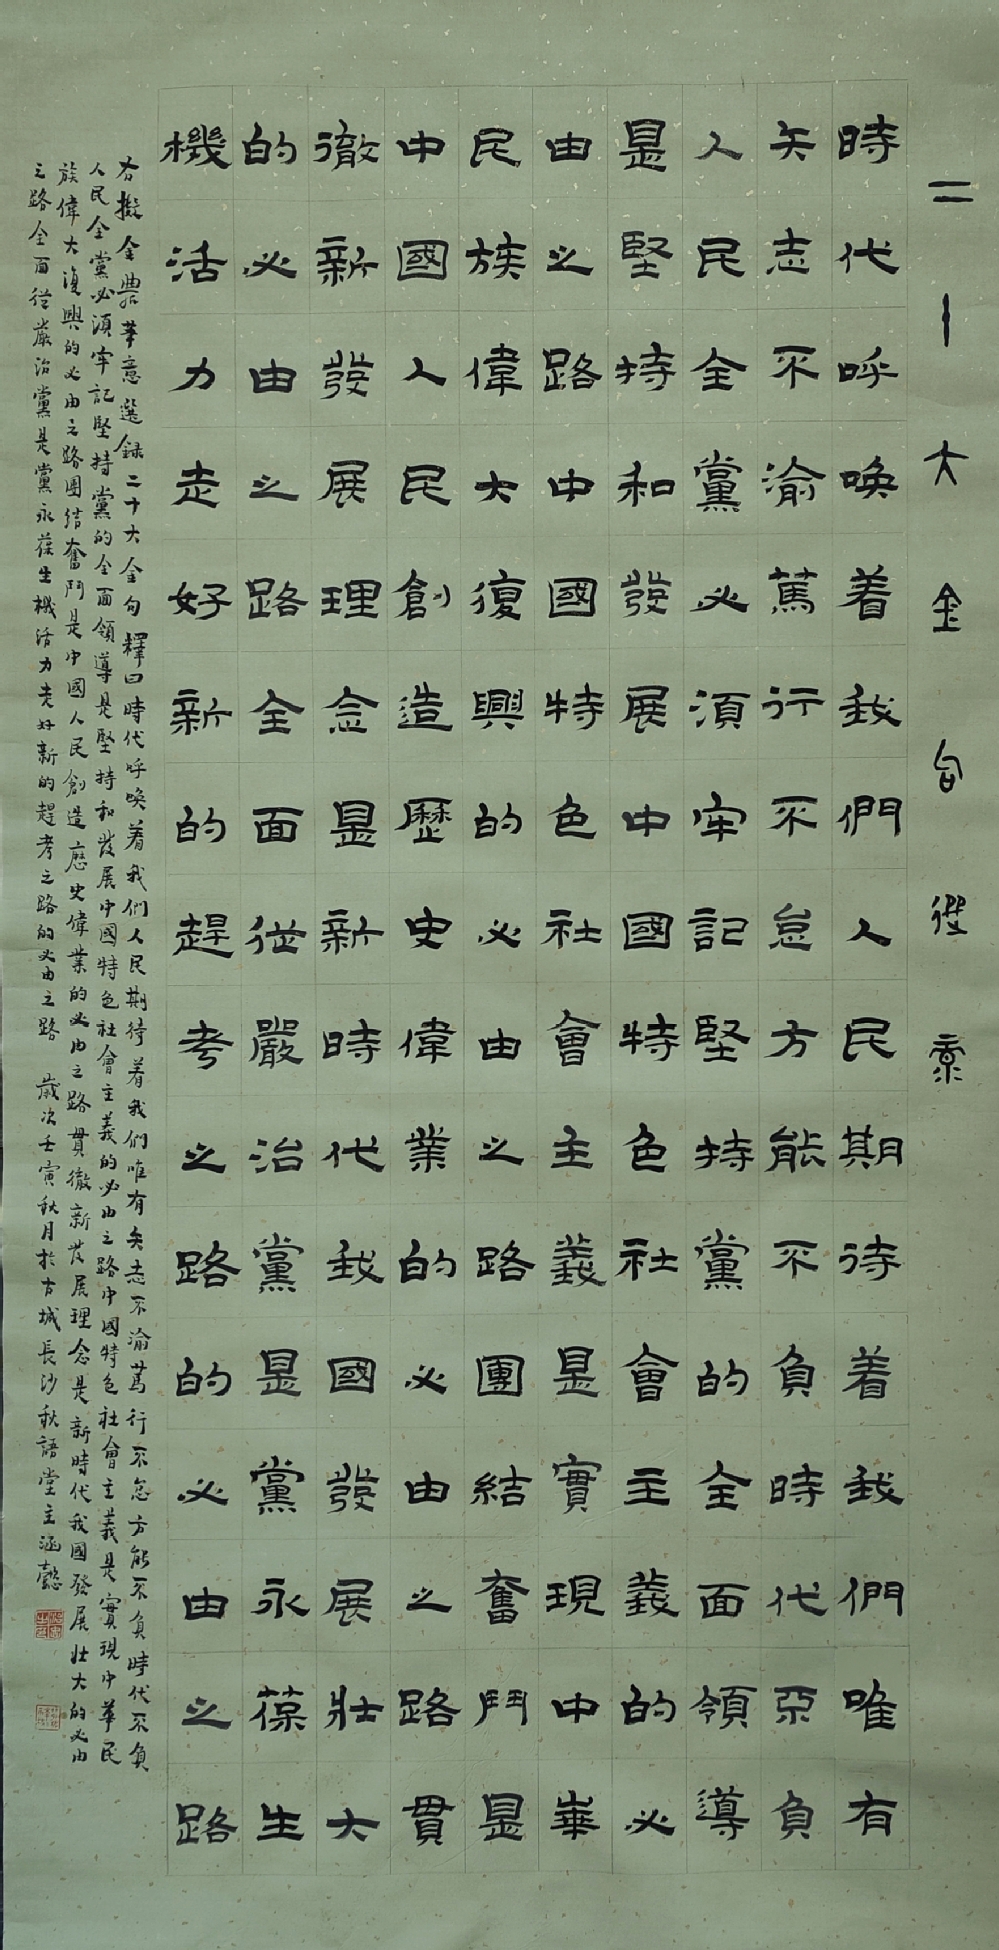 二十大金句選录
時代呼喚着我們人民期待着我們唯有
矢志不渝篤行不怠方能不負時代不負
人民全黨必須牢記堅持黨的全面領導
是堅持和發展中國特色社會主義的必
由之路中國特色社會主義是實現中華
民族偉大復興的必由之路團結奮鬥是
中國人民創造歷史偉業的必由之路貫
徹新發展理念是新時代我國發展壯大
的必由之路全面從嚴治黨是黨永葆生
機活力走好新的趕考之路的必由之路
右擬金農筆意選録二十大金句釋曰時代呼喚着我们人民期待着我们唯有矢志不渝篤行不怠方能不負時代不負
人民全黨必須牢記堅持黨的全面領導是堅持和發展中國特色社會主義的必由之路中國特色社會主義是實現中華民
族偉大復興的必由之路團结奮鬥是中國人民創造歷史偉業的必由之路貫徹新發展理念是新時代我國發展壯大的必由
之路全面從嚴治黨是黨永葆生機活力走好新的趕考之路的必由之路 歲次壬寅秋月於古城長沙秋語堂主涵懿